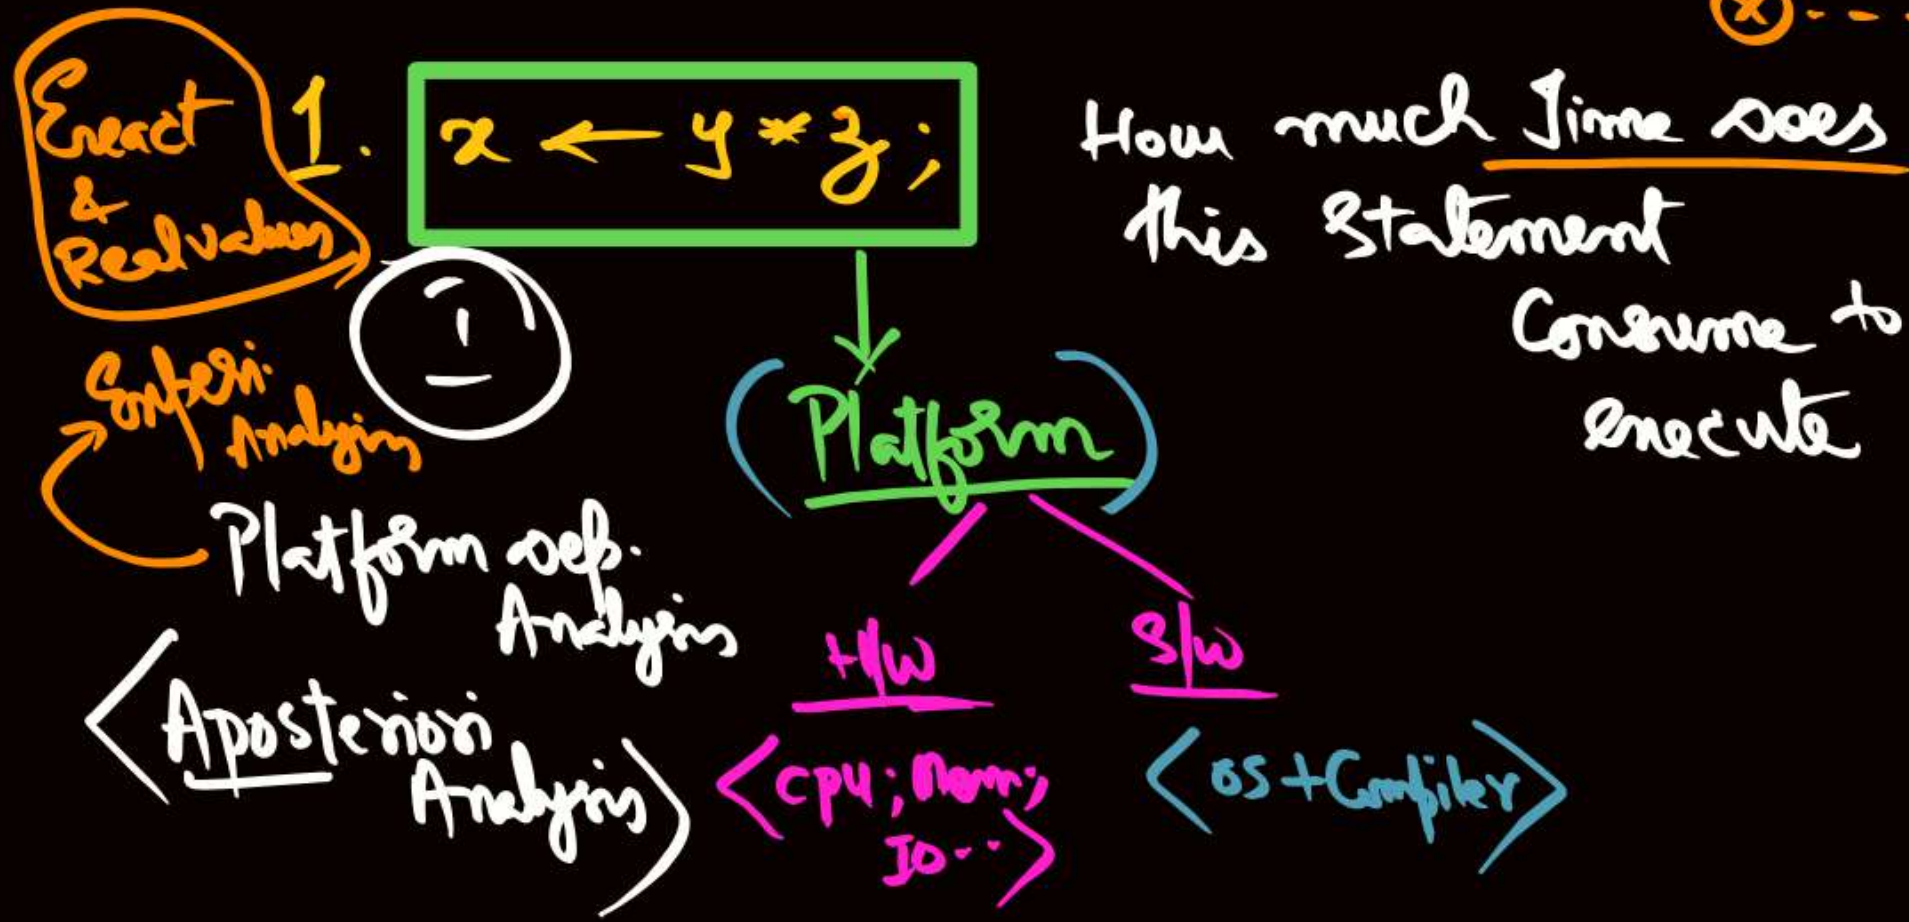 x - - -
Exact
&
Real values
1. x ← y * z ;
How much Time does
this Statement
Consume to
execute
1
Experi.
Analysis
(Platform)
Platform dep.
Analysis
<Aposteriori
Analysis>
H/W
S/W
<CPU; Mem;
IO-->
<OS + Compiler>